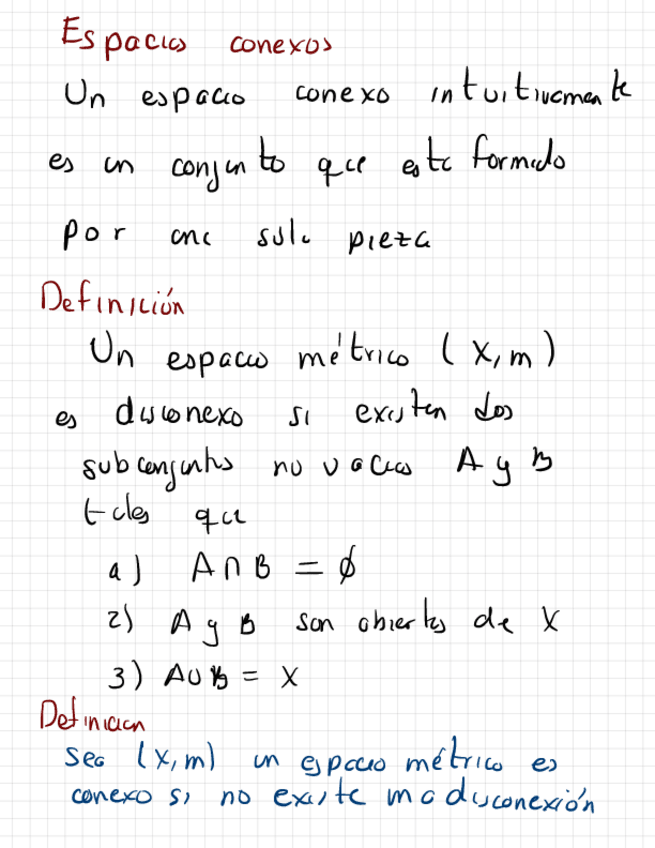 Espacios conexos
Un espacio conexo intuitivamente
es un conjunto que esta formado
por una sola pieza
Definición
Un espacio métrico (X, m)
es disconexo si existen dos
subconjuntos no vacios A y B
tales que
a) A ∩ B = ∅
2) A y B son abiertos de X
3) A ∪ B = X
Definicion
Sea (X, m) un espacio métrico es
conexo si no existe una disconexión